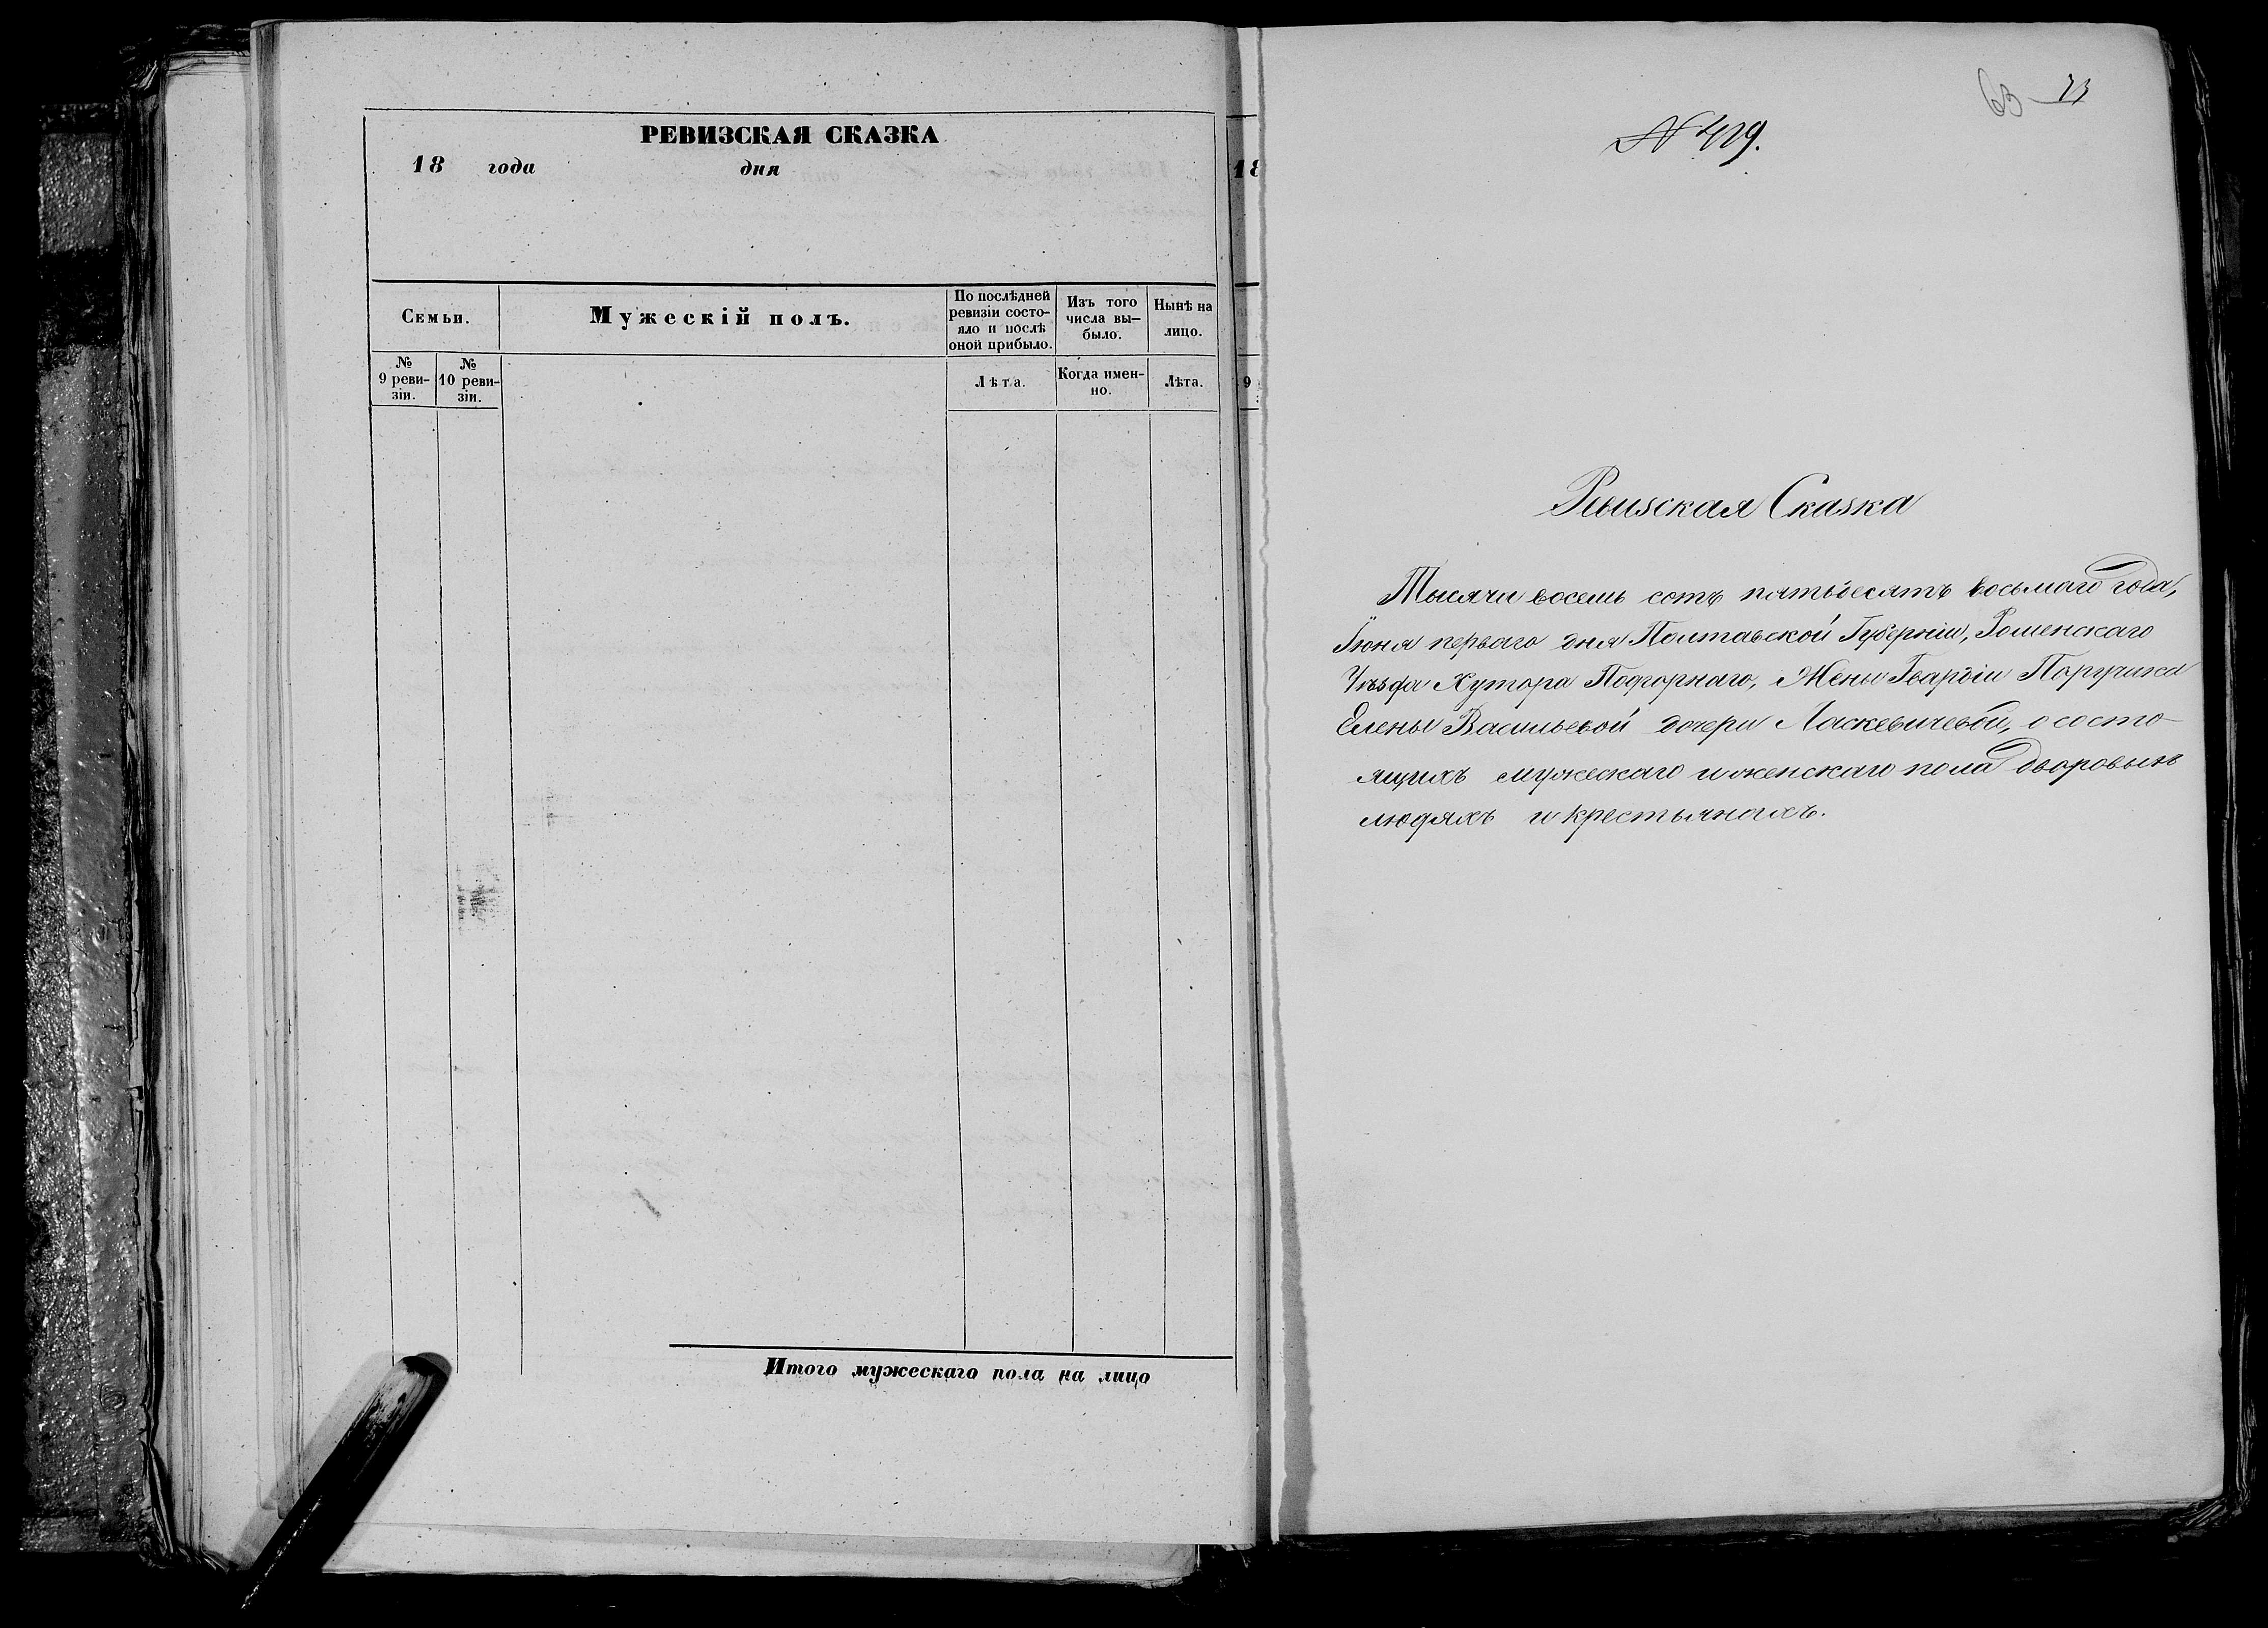 РЕВИЗСКАЯ СКАЗКА
18 года дня
Семьи.
Мужескій полъ.
По послѣдней
ревизіи состо-
яло и послѣ
оной прибыло.
Изъ того
числа вы-
было.
Нынѣ на
лицо.
№
9 реви-
зіи.
№
10 реви-
зіи.
Лѣта.
Когда имен-
но.
Лѣта.
Итого мужескаго пола на лицо
18
9
63
№ 419.
Ревизская Сказка
Тысячи восемь сотъ пятьдесятъ восьмаго года,
Іюня перваго дня Полтавской Губерніи, Роменскаго
Уѣзда Хутора Подгорнаго, Жены Гвардіи Поручика
Елены Васильевой дочери Ласкевичевой, о состо-
ящихъ мужескаго и женскаго пола дворовыхъ
людяхъ и крестьянахъ.